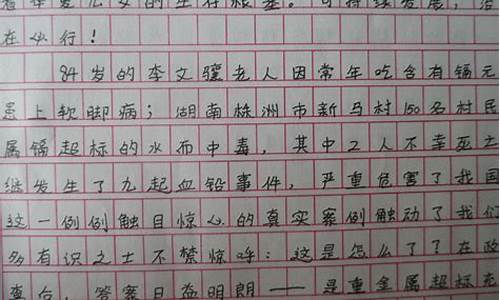 着华夏儿女的生存根基。可持续发展，治
在必行！
84岁的李文骧老人因常年吃含有镉元
患上软脚病；湖南株洲市新马村150名村民
属镉超标的水而中毒，其中2人不幸死亡
继发生了九起血铅事件，严重危害了我国
这一例例触目惊心的真实案例触动了我们
多有识之士不禁惊呼：这是怎么了？在政
查台，答案日益明朗——是重金属超标充